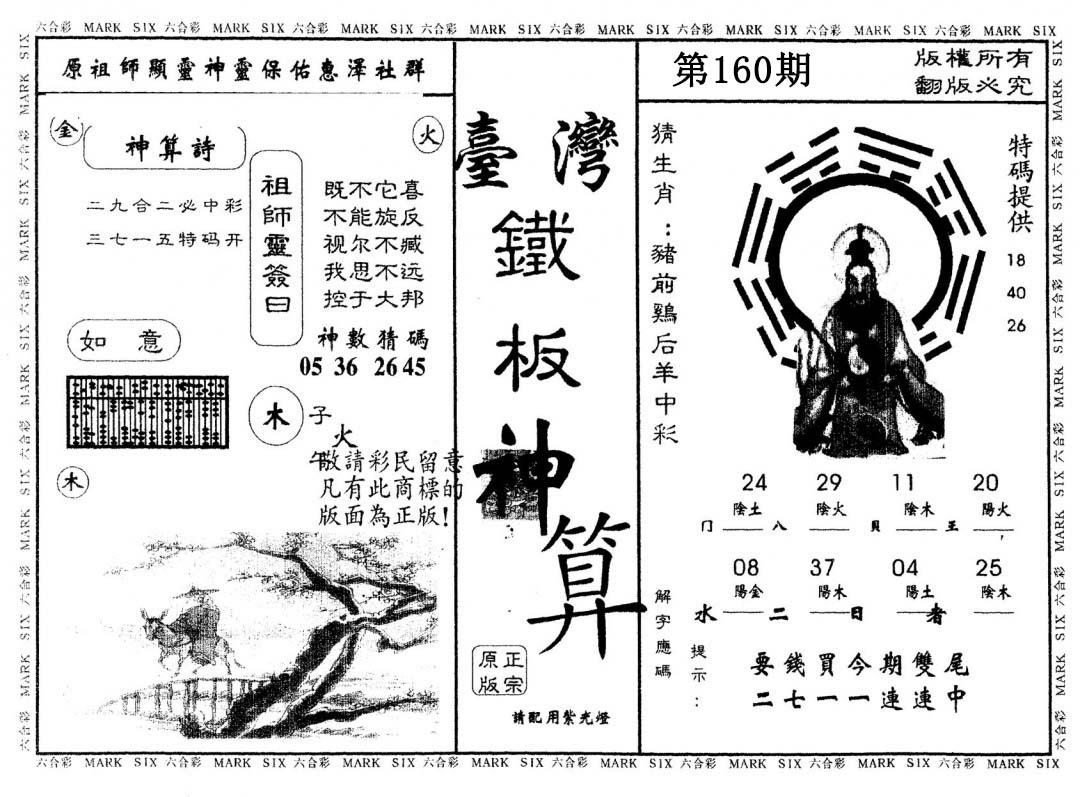 六合彩 MARK SIX 六合彩 MARK SIX 六合彩 MARK SIX 六合彩 MARK SIX 六合彩 MARK SIX 六合彩 MARK SIX 六合彩 MARK SIX 六合彩 MARK SIX
原祖師顯靈神靈保佑惠澤社群
金
火
神算詩
二九合二必中彩
三七一五特码开
祖師靈簽曰
既不它喜
不能旋反
视尔不臧
我思不远
控于大邦
神數猜碼
05 36 26 45
如意
木
子
火
午
木
敬請彩民留意
凡有此商標的
版面為正版!
臺灣
鐵
板
神
算
正宗
原版
請配用紫光燈
第160期
版權所有
翻版必究
猜生肖:豬前鷄后羊中彩
特碼提供
18
40
26
24 29 11 20
陰土 陰火 陰木 陽火
冂 八 貝 王
08 37 04 25
陽金 陽木 陽土 陰木
水 二 日 者
解字應碼
提示:
要錢買今期雙尾
二七一一連連中
六合彩 MARK SIX 六合彩 MARK SIX 六合彩 MARK SIX 六合彩 MARK SIX 六合彩 MARK SIX 六合彩 MARK SIX 六合彩 MARK SIX 六合彩 MARK SIX